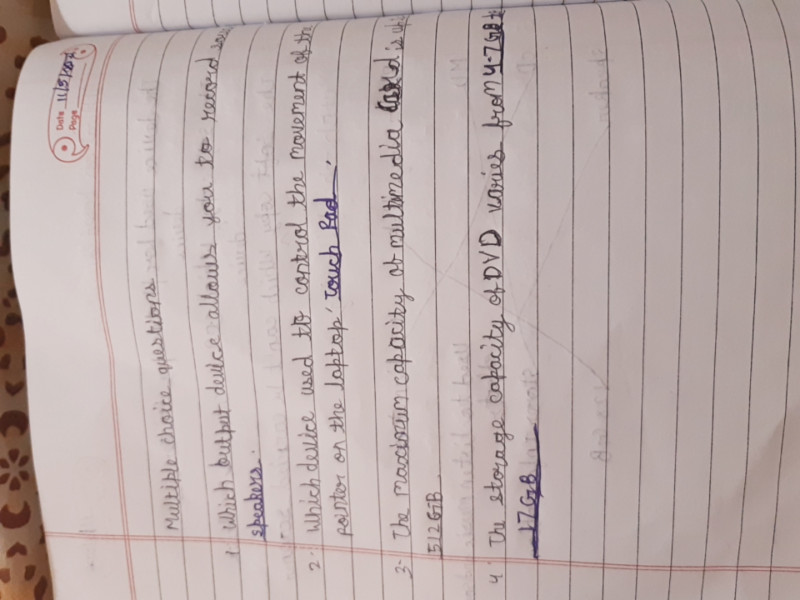 Date 11/5/202
Page
Multiple choice questions
1. Which output device allows you to record
speakers.
2. Which device used to control the movement of the
pointer on the laptop' Touch Pad.
3- The maximum capacity of multimedia card is
512GB.
4 The storage capacity of DVD varies from 4.7GB
17GB